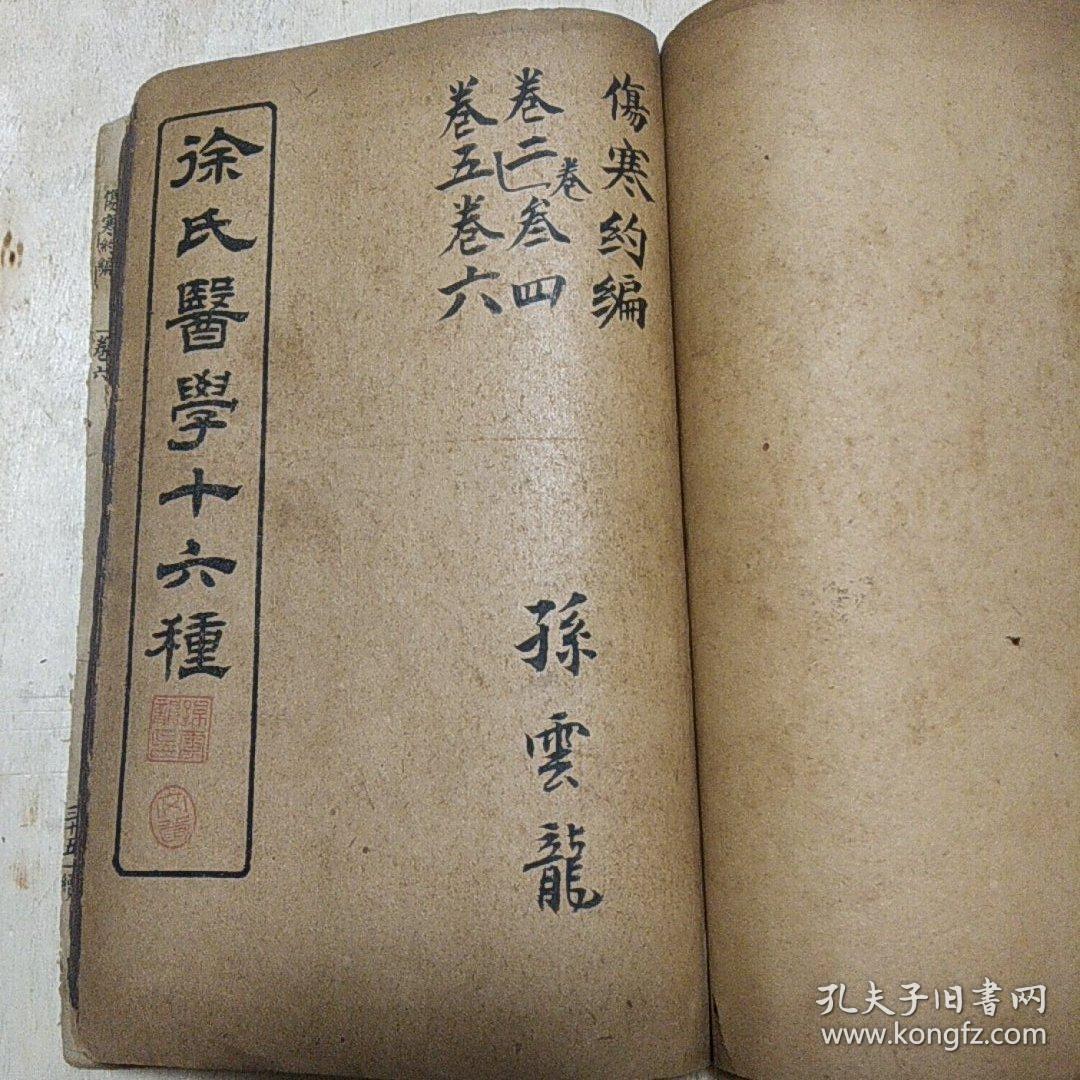 傷寒约编
卷二卷叁四
卷五卷六
孫雲龍
徐氏醫學十六種
傷寒約編
卷六
孔夫子旧書网
www.kongfz.com